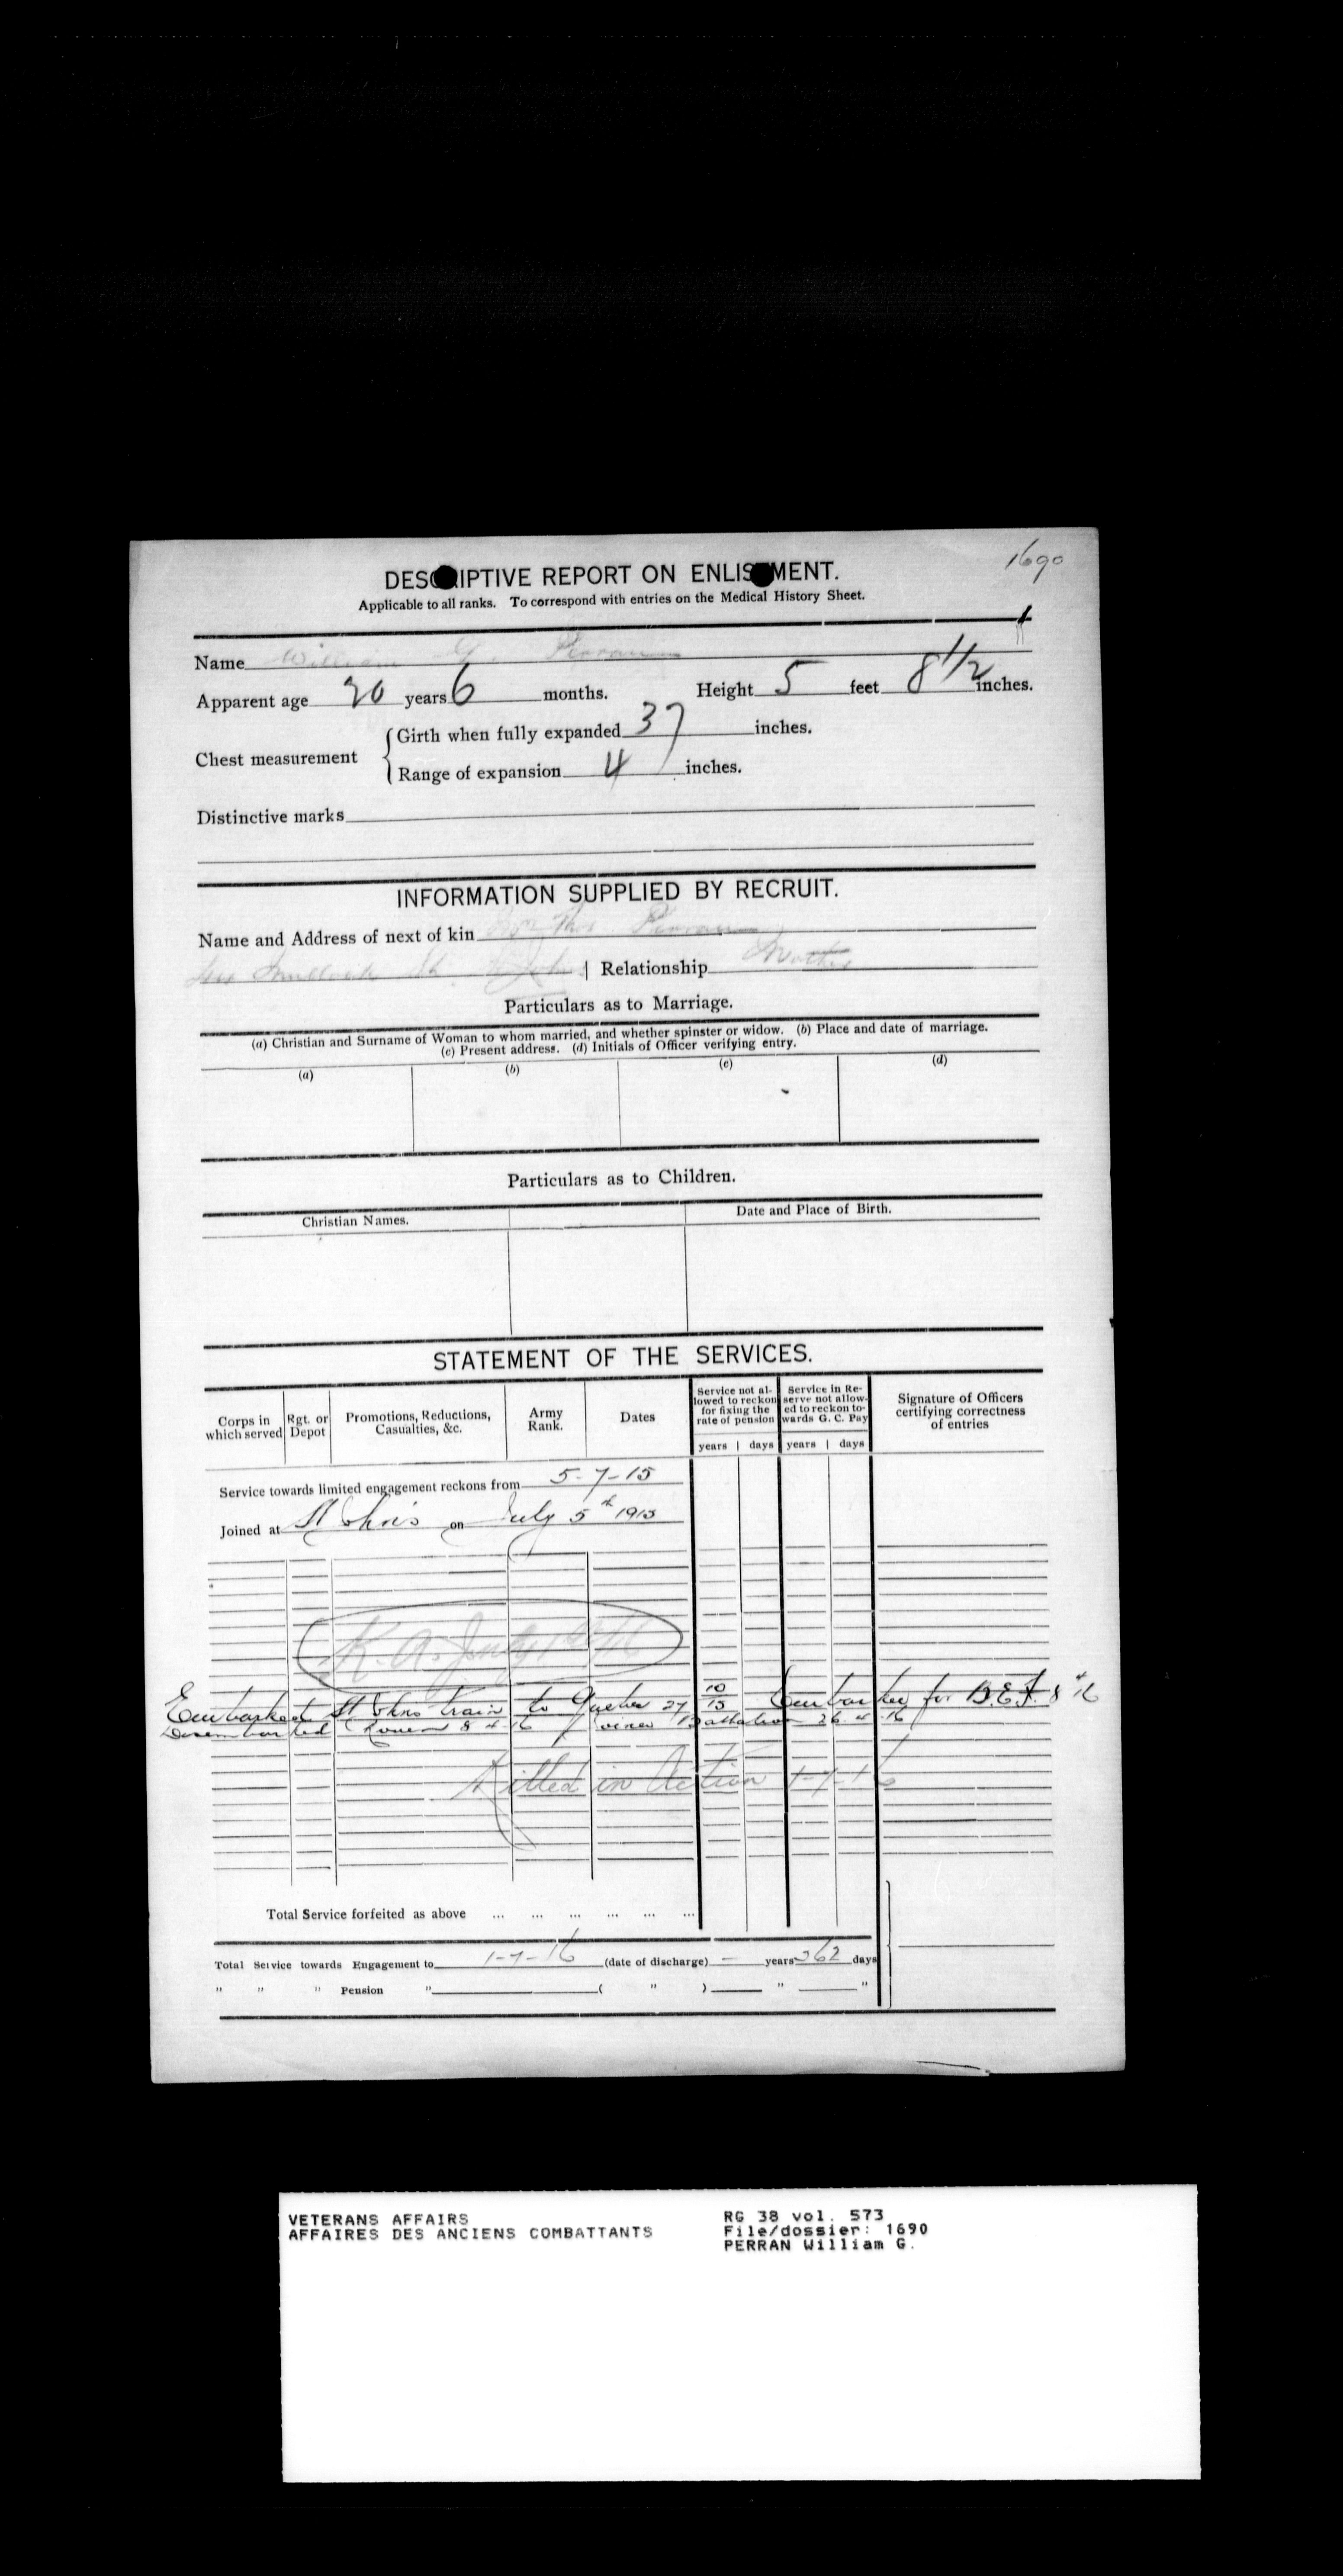 1690
DESCRIPTIVE REPORT ON ENLISTMENT.
Applicable to all ranks. To correspond with entries on the Medical History Sheet.
Name William G. Perran
Apparent age 20 years 6 months. Height 5 feet 8 1/2 inches.
Chest measurement { Girth when fully expanded 37 inches.
Range of expansion 4 inches.
Distinctive marks
INFORMATION SUPPLIED BY RECRUIT.
Name and Address of next of kin Perran
St. | Relationship Mother
Particulars as to Marriage.
(a) Christian and Surname of Woman to whom married, and whether spinster or widow. (b) Place and date of marriage.
(c) Present address. (d) Initials of Officer verifying entry.
(a) (b) (c) (d)
Particulars as to Children.
Christian Names. Date and Place of Birth.
STATEMENT OF THE SERVICES.
Corps in which served Rgt. or Depot Promotions, Reductions, Casualties, &c. Army Rank. Dates Service not allowed to reckon for fixing the rate of pension Service in Reserve not allowed to reckon towards G. C. Pay Signature of Officers certifying correctness of entries
years | days years | days
Service towards limited engagement reckons from 5-7-15
Joined at St Johns on July 5th 1915
K. A. July 1st/16
Embarked St Johns train to Quebec 27 10/15 Embarked for B.E.F. 8 4 16
Disembarked Rouen 8 4 16 Joined Battalion 26 4 16
Killed in Action 1-7-16
Total Service forfeited as above ... ... ... ... ... ...
Total Service towards Engagement to 1-7-16 (date of discharge) — years 362 days
" " " Pension " ( " ) " "
VETERANS AFFAIRS RG 38 vol. 573
AFFAIRES DES ANCIENS COMBATTANTS File/dossier: 1690
PERRAN William G.